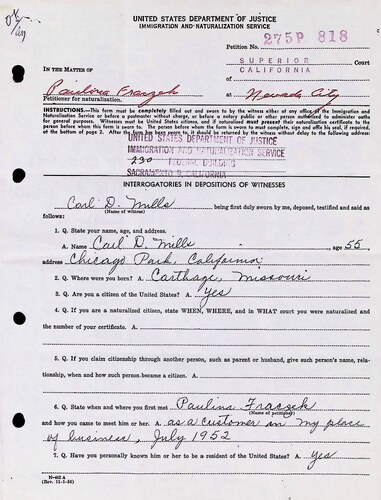 OK
UNITED STATES DEPARTMENT OF JUSTICE
IMMIGRATION AND NATURALIZATION SERVICE
Petition No. 275P 818
SUPERIOR Court
IN THE MATTER OF
CALIFORNIA
of
Paulina Fraczek
at Nevada City
Petitioner for naturalization.
INSTRUCTIONS.—This form must be completely filled out and sworn to by the witness either at any office of the Immigration and
Naturalization Service or before a postmaster without charge, or before a notary public or other person authorized to administer oaths
for general purposes. Witnesses must be United States citizens, and if naturalized must present their naturalization certificate to the
person before whom this form is sworn to. The person before whom the form is sworn to must complete, sign and affix his seal, if required,
at the bottom of page 2. After the form has been sworn to, it should be returned by the witness without delay to the following address:
UNITED STATES DEPARTMENT OF JUSTICE
IMMIGRATION AND NATURALIZATION SERVICE
230 FEDERAL BUILDING
SACRAMENTO 9, CALIFORNIA
INTERROGATORIES IN DEPOSITIONS OF WITNESSES
Carl D. Mills being first duly sworn by me, deposed, testified and said as
(Name of witness)
follows:
1. Q. State your name, age, and address.
A. Name Carl D. Mills age 55,
address Chicago Park, California
2. Q. Where were you born? A. Carthage, Missouri
3. Q. Are you a citizen of the United States? A. Yes
4. Q. If you are a naturalized citizen, state WHEN, WHERE, and in WHAT court you were naturalized and
the number of your certificate. A.
5. Q. If you claim citizenship through another person, such as parent or husband, give such person's name, rela-
tionship, when and how such person became a citizen. A.
6. Q. State when and where you first met Paulina Fraczek
(Name of petitioner)
and how you came to meet him or her. A. as a customer in my place
of business, July 1952
7. Q. Have you personally known him or her to be a resident of the United States? A. Yes
N-462 A
(Rev. 11-1-56)